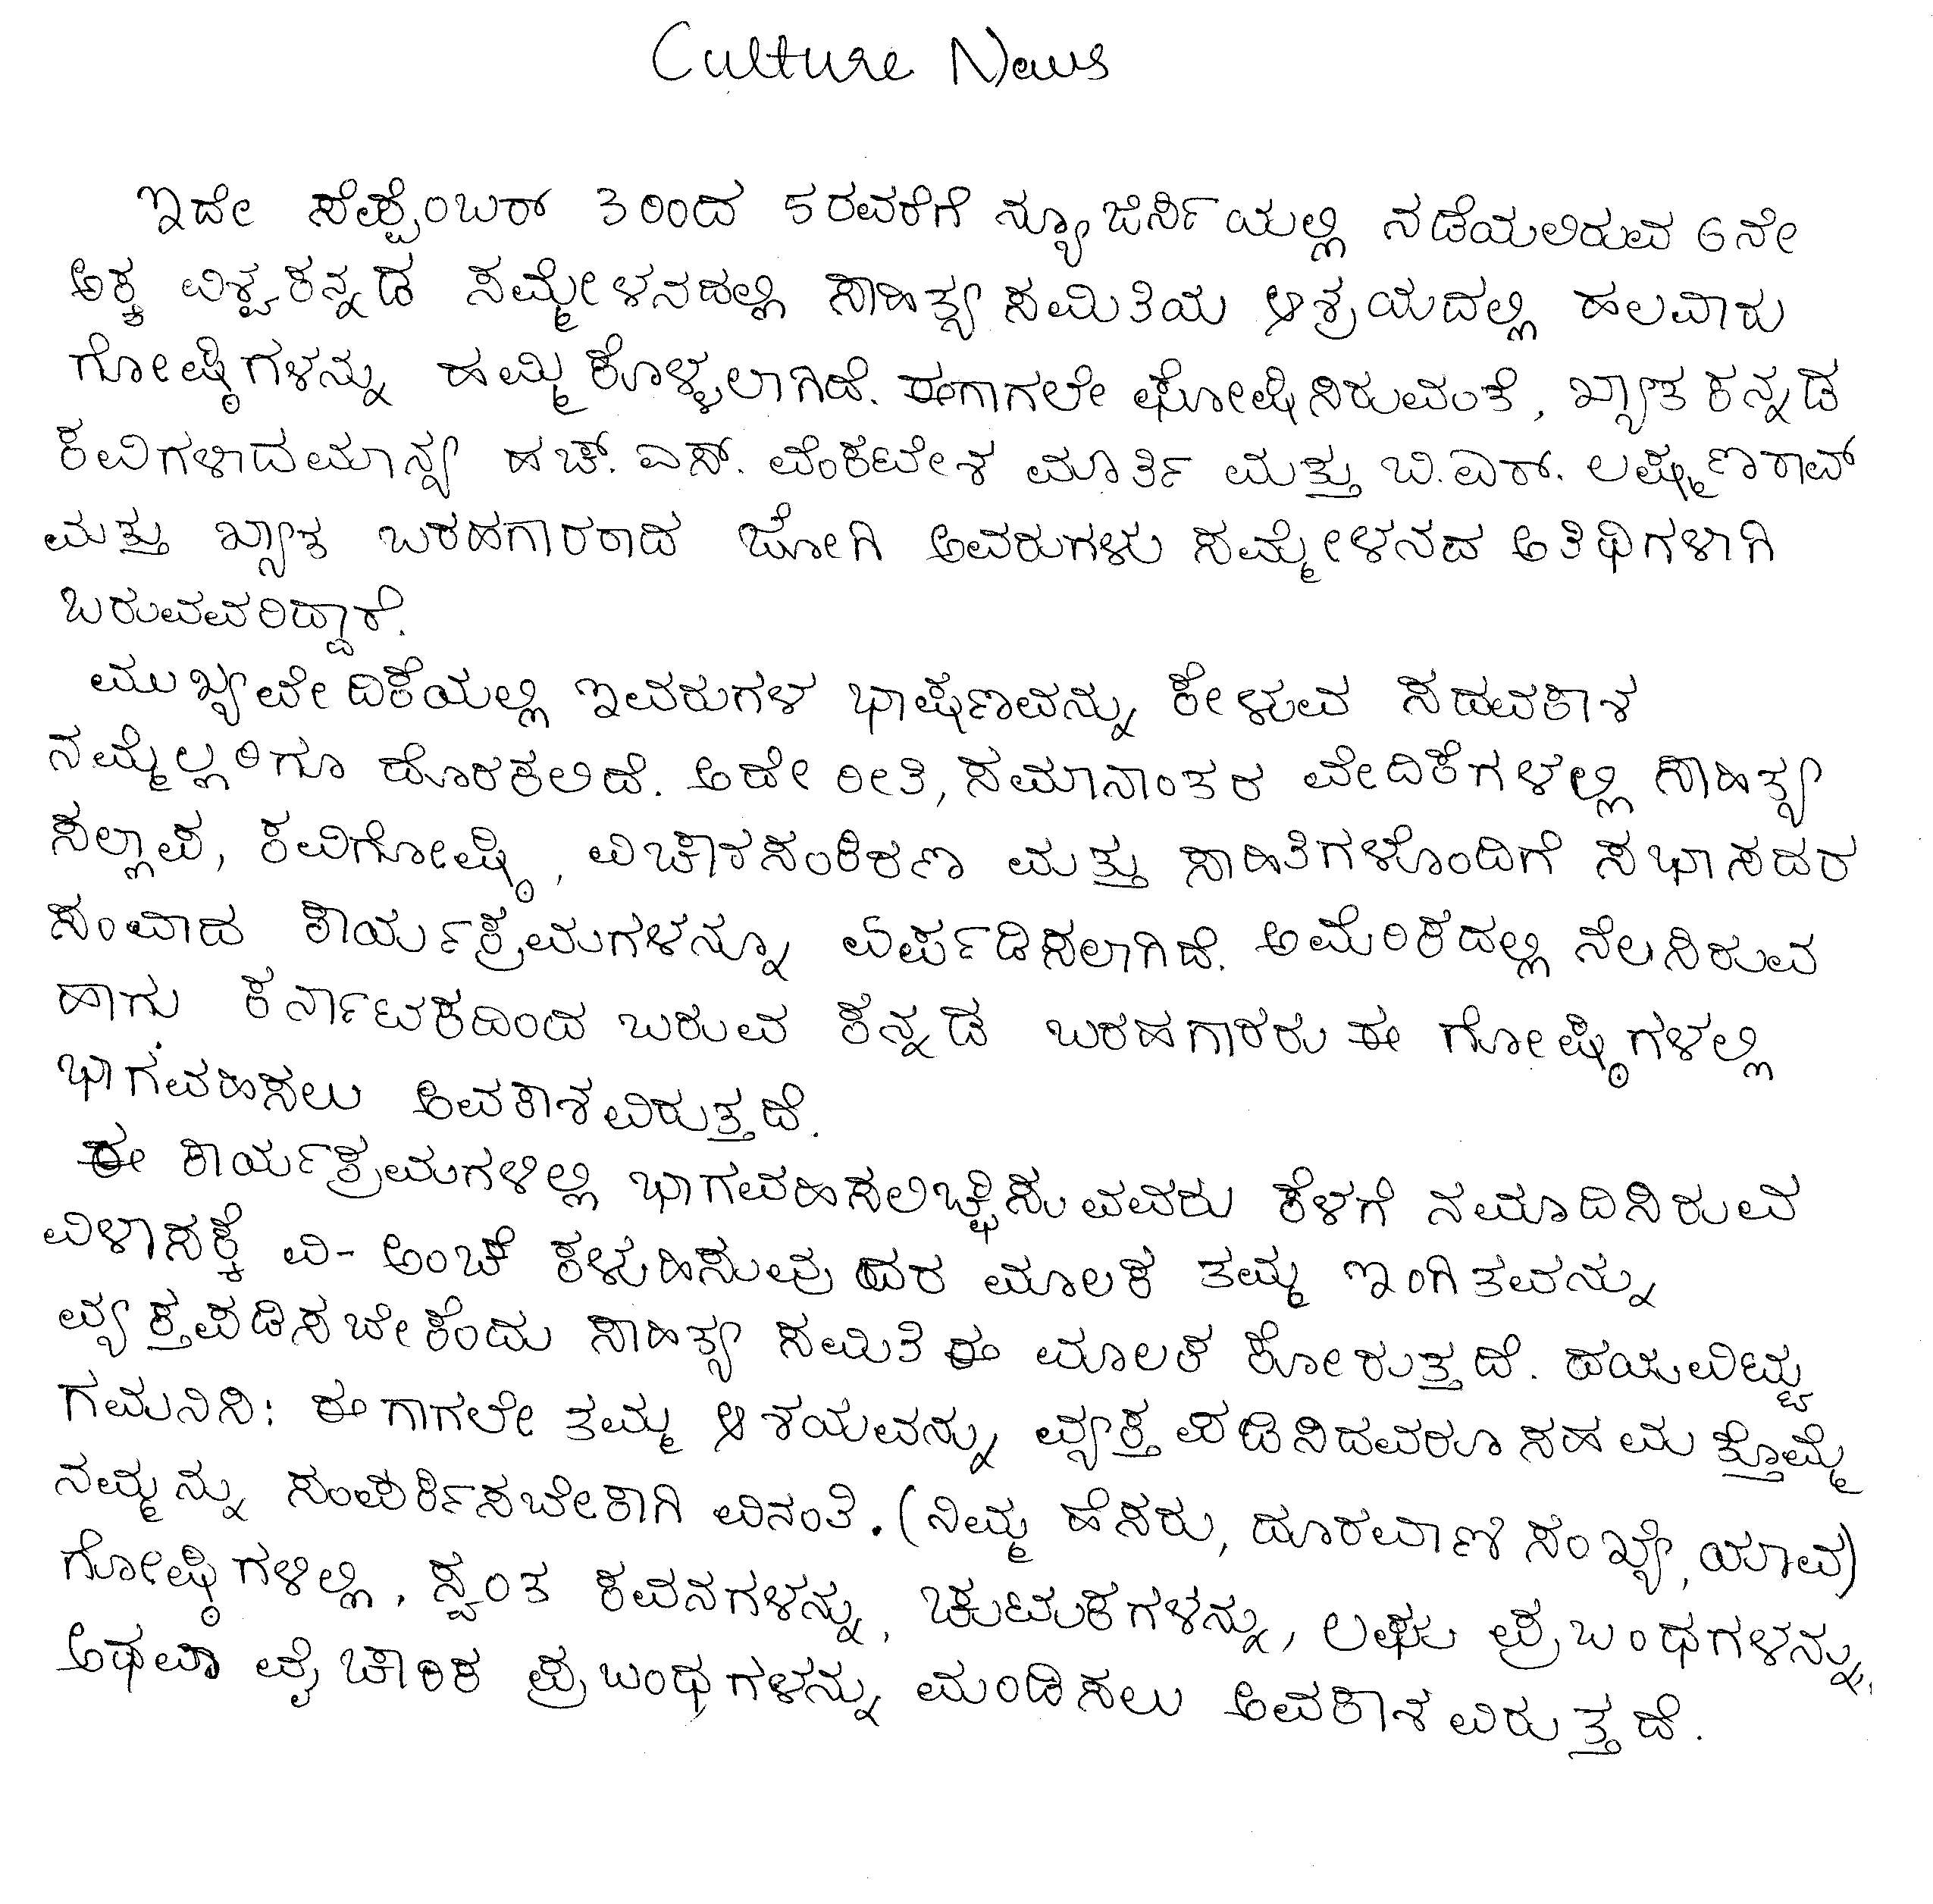 Culture News
ಇದೇ ಸೆಪ್ಟೆಂಬರ್ 3ರಿಂದ 5ರವರೆಗೆ ನ್ಯೂಜೆರ್ಸಿಯಲ್ಲಿ ನಡೆಯಲಿರುವ 6ನೇ
ಅಕ್ಕ ವಿಶ್ವಕನ್ನಡ ಸಮ್ಮೇಳನದಲ್ಲಿ ಸಾಹಿತ್ಯ ಸಮಿತಿಯ ಆಶ್ರಯದಲ್ಲಿ ಹಲವಾರು
ಗೋಷ್ಠಿಗಳನ್ನು ಹಮ್ಮಿಕೊಳ್ಳಲಾಗಿದೆ. ಈಗಾಗಲೇ ಘೋಷಿಸಿರುವಂತೆ, ಖ್ಯಾತ ಕನ್ನಡ
ಕವಿಗಳಾದಮಾನ್ಯ ಹಚ್. ಎಸ್. ವೆಂಕಟೇಶ ಮೂರ್ತಿ ಮತ್ತು ಬಿ.ಎರ್. ಲಷ್ಮಣರಾವ್
ಮತ್ತು ಖ್ಯಾತ ಬರಹಗಾರರಾದ ಜೋಗಿ ಅವರುಗಳು ಸಮ್ಮೇಳನದ ಅತಿಥಿಗಳಾಗಿ
ಬರುವವರಿದ್ದಾರೆ.
ಮುಖ್ಯವೇದಿಕೆಯಲ್ಲಿ ಇವರುಗಳ ಭಾಷಣವನ್ನು ಕೇಳುವ ಸದವಕಾಶ
ನಮ್ಮೆಲ್ಲರಿಗೂ ದೊರಕಲಿದೆ. ಅದೇ ರೀತಿ, ಸಮಾನಾಂತರ ವೇದಿಕೆಗಳಲ್ಲಿ ಸಾಹಿತ್ಯ
ಸಲ್ಲಾಪ, ಕವಿಗೋಷ್ಠಿ, ವಿಚಾರಸಂಕಿರಣ ಮತ್ತು ಸಾಹಿತಿಗಳೊಂದಿಗೆ ಸಭಾಸದರ
ಸಂವಾದ ಕಾರ್ಯಕ್ರಮಗಳನ್ನೂ ಏರ್ಪಡಿಸಲಾಗಿದೆ. ಅಮೆರಿಕದಲ್ಲಿ ನೆಲಸಿರುವ
ಹಾಗು ಕರ್ನಾಟಕದಿಂದ ಬರುವ ಕನ್ನಡ ಬರಹಗಾರರು ಈ ಗೋಷ್ಠಿಗಳಲ್ಲಿ
ಭಾಗವಹಿಸಲು ಅವಕಾಶವಿರುತ್ತದೆ.
ಈ ಕಾರ್ಯಕ್ರಮಗಳಲ್ಲಿ ಭಾಗವಹಿಸಲಿಚ್ಛಿಸುವವರು ಕೆಳಗೆ ನಮೂದಿಸಿರುವ
ವಿಳಾಸಕ್ಕೆ ವಿ-ಅಂಚೆ ಕಳುಹಿಸುವುದರ ಮೂಲಕ ತಮ್ಮ ಇಂಗಿತವನ್ನು
ವ್ಯಕ್ತಪಡಿಸಬೇಕೆಂದು ಸಾಹಿತ್ಯ ಸಮಿತಿ ಈ ಮೂಲಕ ಕೋರುತ್ತದೆ. ದಯವಿಟ್ಟು
ಗಮನಿಸಿ: ಈಗಾಗಲೇ ತಮ್ಮ ಆಶಯವನ್ನು ವ್ಯಕ್ತಪಡಿಸಿದವರೂ ಸಹ ಮತ್ತೊಮ್ಮೆ
ನಮ್ಮನ್ನು ಸಂಪರ್ಕಿಸಬೇಕಾಗಿ ವಿನಂತಿ. (ನಿಮ್ಮ ಹೆಸರು, ದೂರವಾಣಿ ಸಂಖ್ಯೆ, ಯಾವ)
ಗೋಷ್ಠಿಗಳಲ್ಲಿ, ಸ್ವಂತ ಕವನಗಳನ್ನು, ಚುಟುಕಗಳನ್ನು, ಲಘು ಪ್ರಬಂಧಗಳನ್ನು,
ಅಥವಾ ವೈಚಾರಿಕ ಪ್ರಬಂಧಗಳನ್ನು ಮಂಡಿಸಲು ಅವಕಾಶವಿರುತ್ತದೆ.